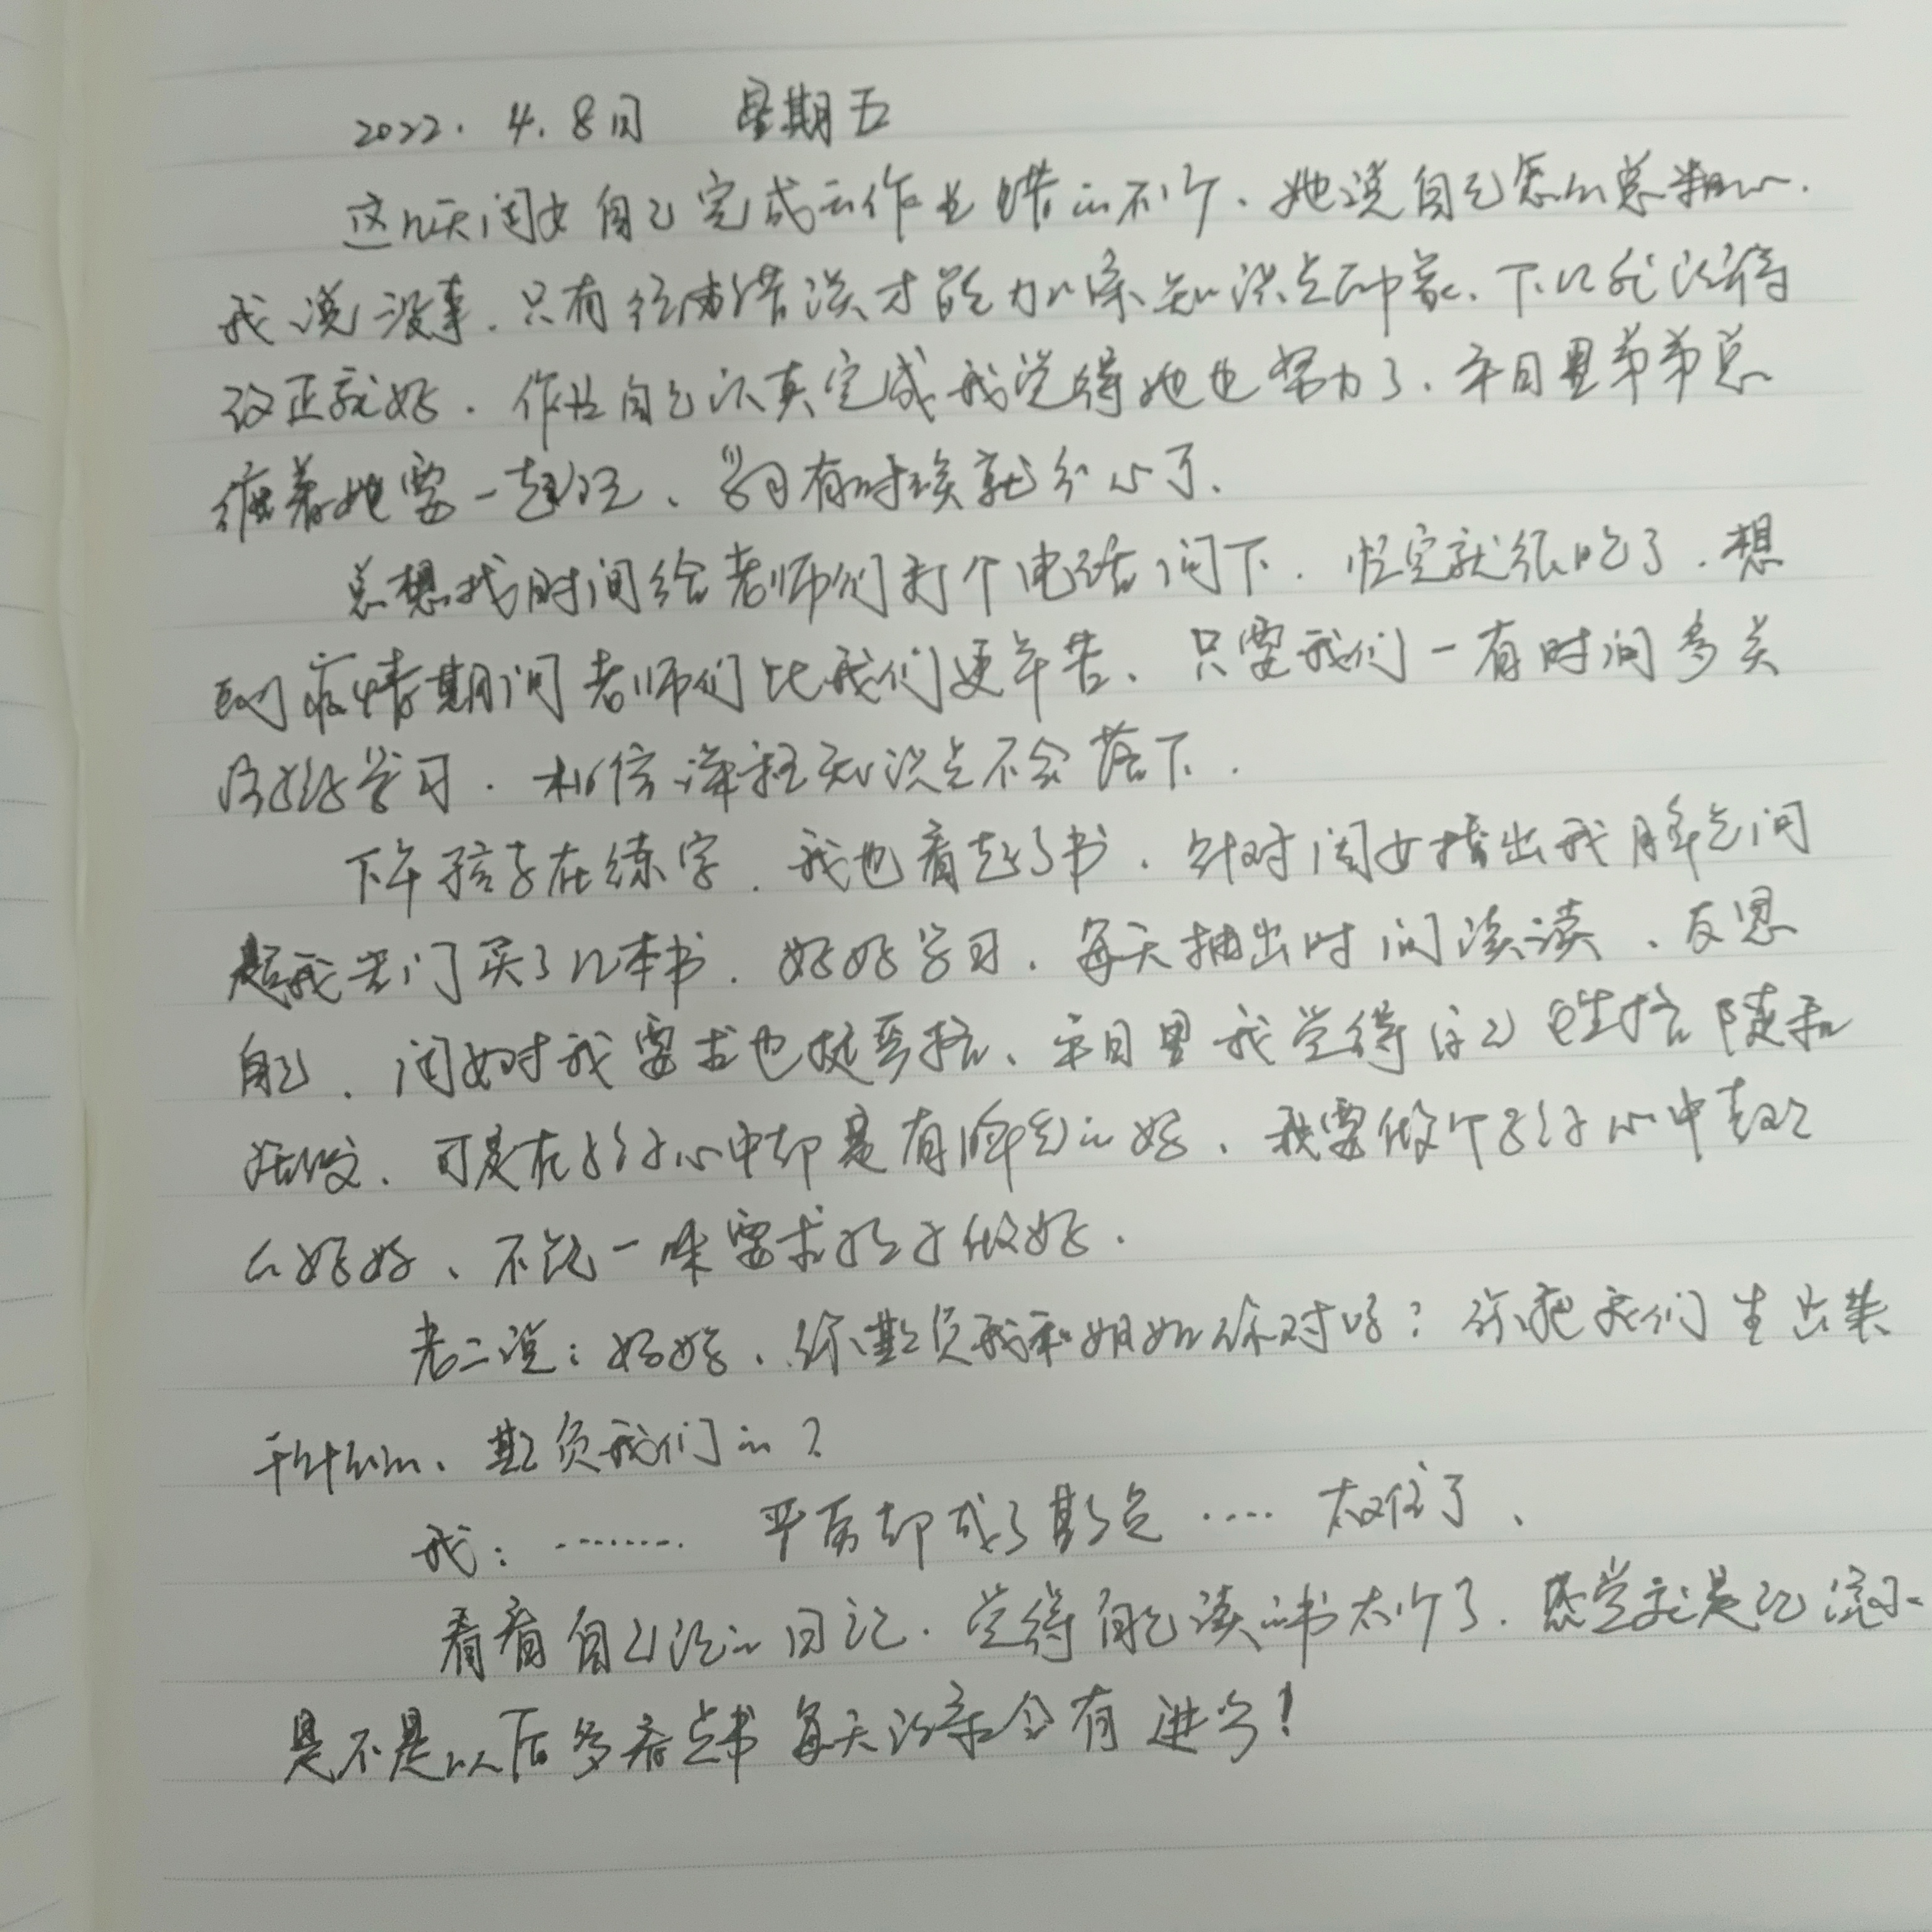 2022.4.8日 星期五
这几天闺女自己完成的作业错的不少、她说自己怎么总粗心.
我说没事.只有经过错误才能加深知识点印象、下次能记得
改正就好.作业自己认真完成我觉得她也努力了.平日里弟弟总
缠着她要一起玩、学习有时候就分心了.
总想找时间给老师们打个电话问下.忙完就很晚了.想
到疫情期间老师们比我们更辛苦、只要我们一有时间多关
学习.相信课程知识点不会落下.
下午孩子在练字.我也看起了书.针对闺女指出我脾气问
题我出门买了几本书.好好学习.每天抽出时间读读、反思
自己.闺女对我要求也挺严格、平日里我觉得自己性格随和
.可是在孩子心中却是有脾气的妈、我要做个孩子心中
的好妈、不能一味要求孩子做好.
老二说:妈妈、你欺负我和姐姐你对吗?你把我们生出来
干什么的、欺负我们的?
我:……… 严厉却成了欺负…… 了、
看着自己记的日记.觉得自己读的书太少了.感觉就是记流水
是不是以后多看点书每天记录会有进步!